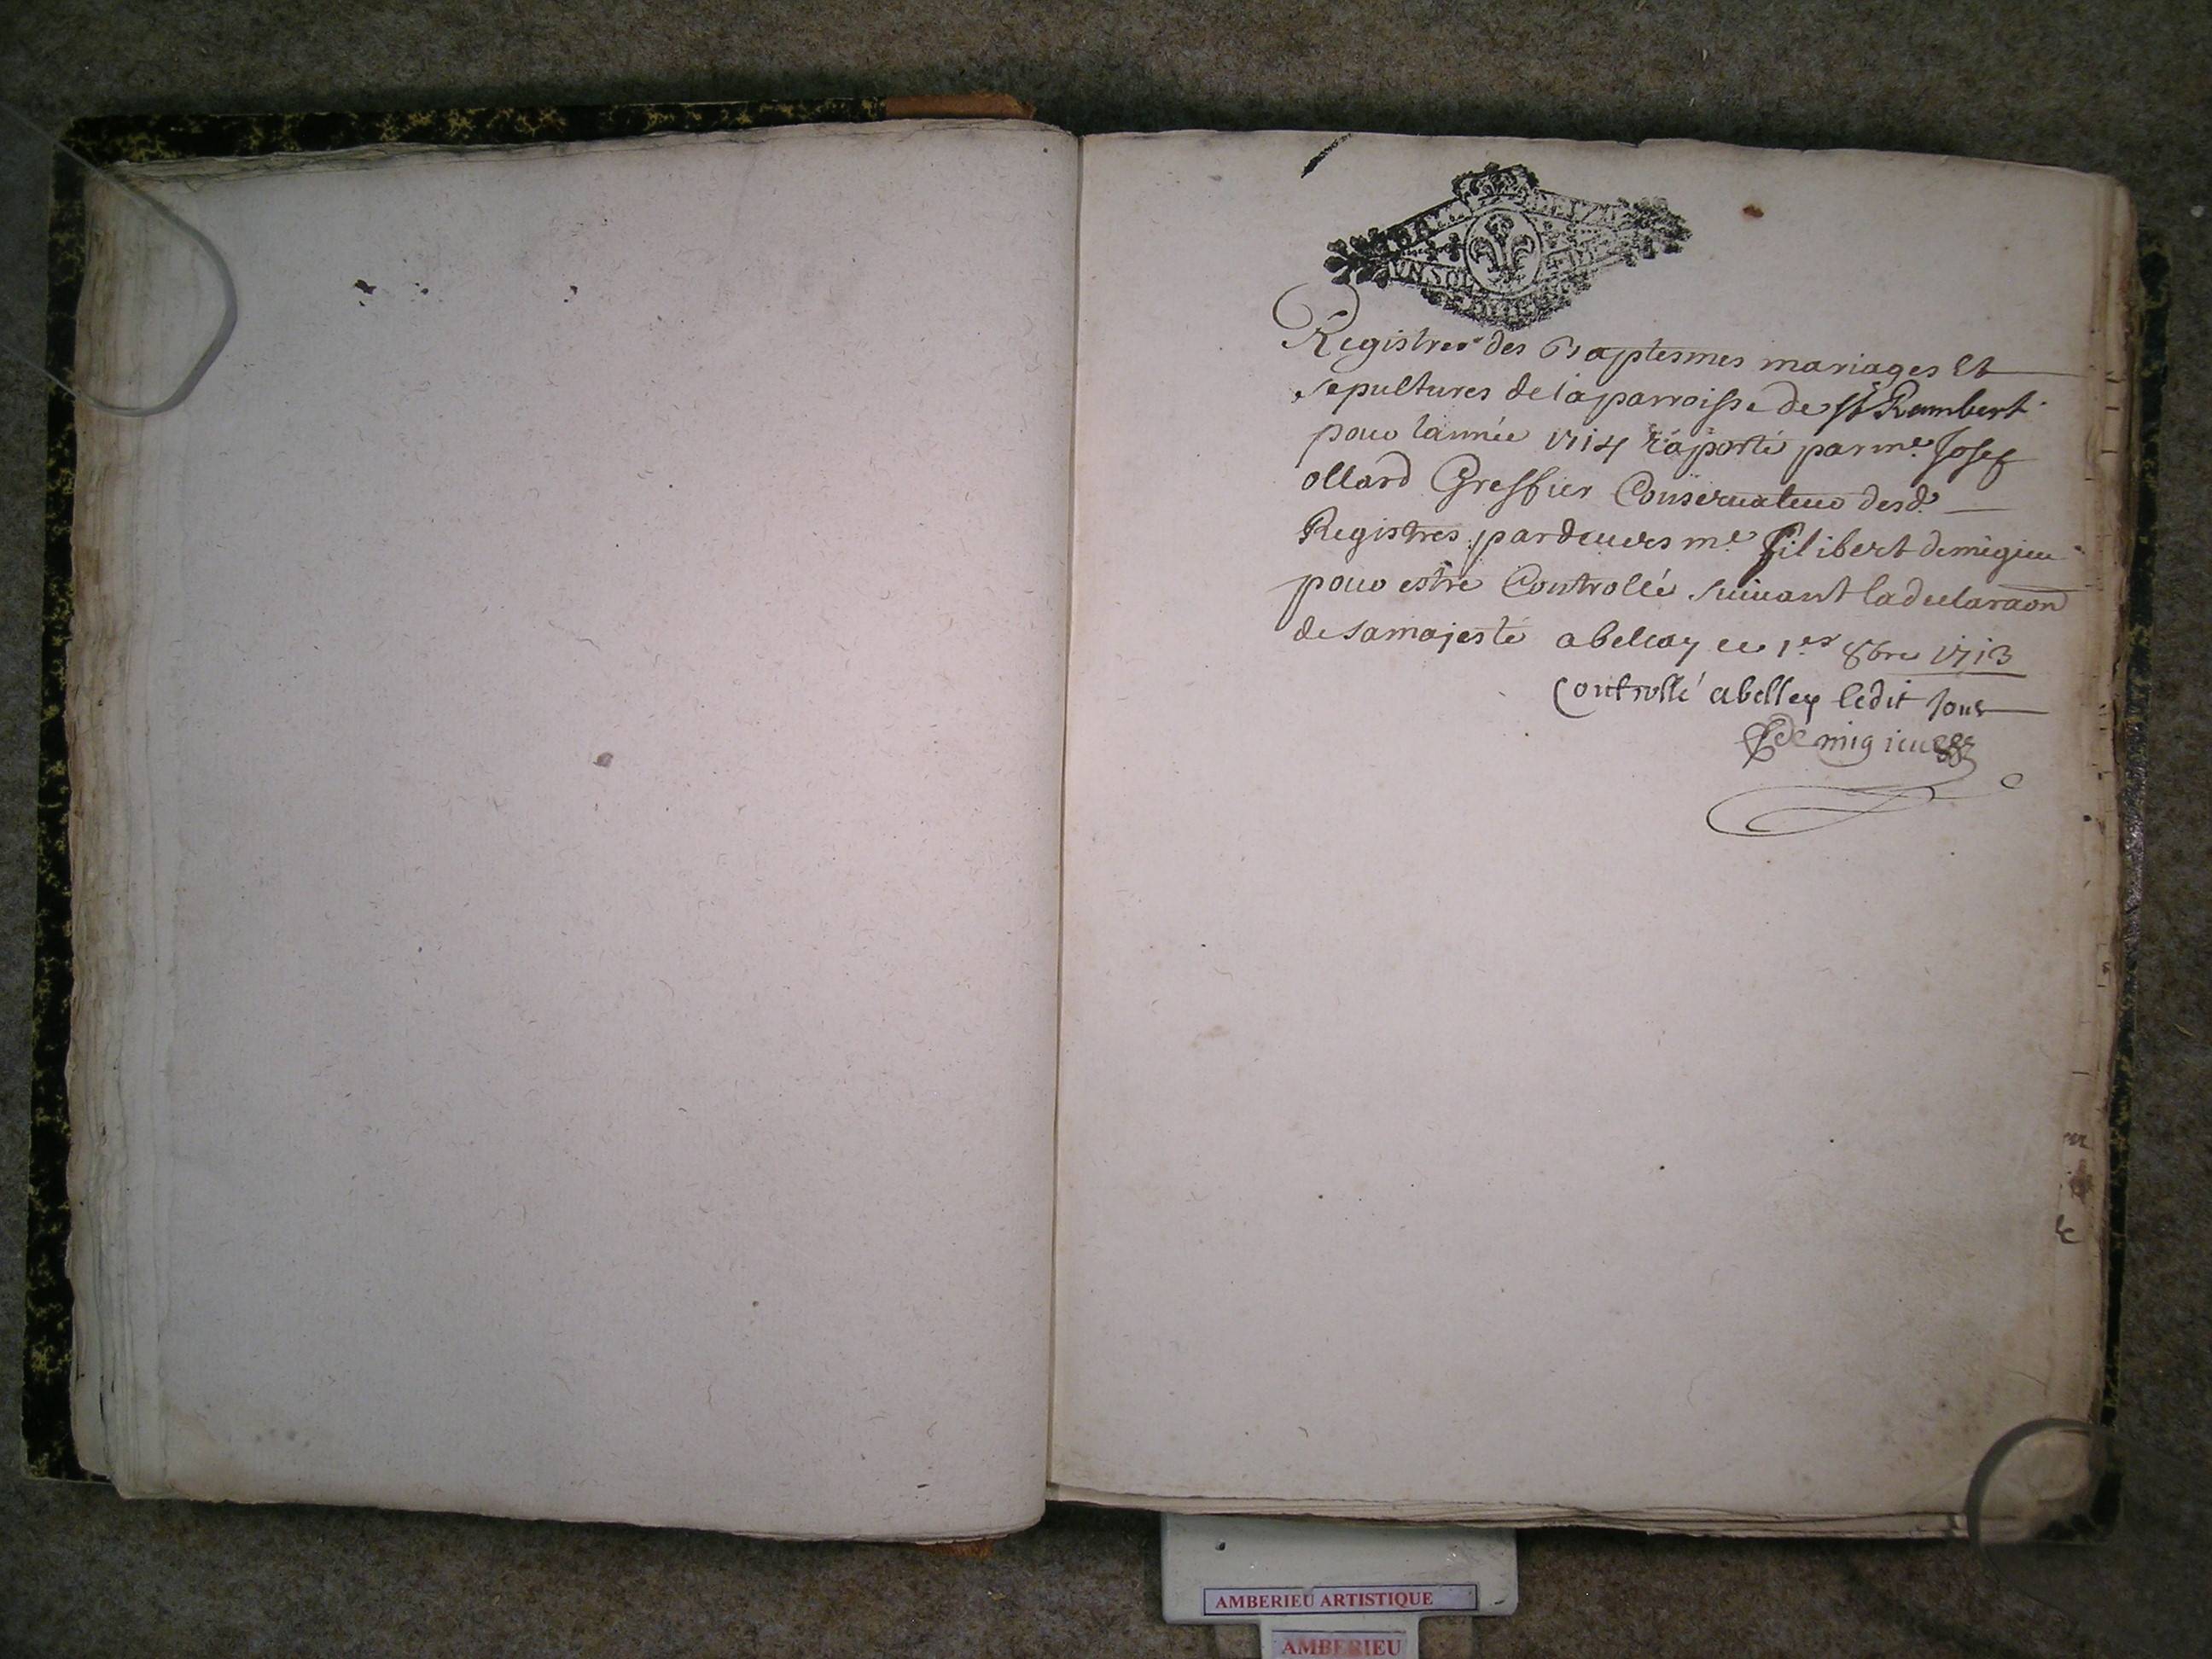 UN SOL
Registres des Baptesmes mariages Et
sepultures de la parroisse de st Rambert
pour lannée 1714 raporté par me. Josef
ollard Greffier Conseruateur desd.
Registres pardeuers me. filibert demigieu
pour estre Controllé suiuant la declaraon
de samajesté abelley ce 1er 8bre 1713
Controllé abelley ledit Jour
Demigieu
AMBERIEU ARTISTIQUE
AMBERIEU